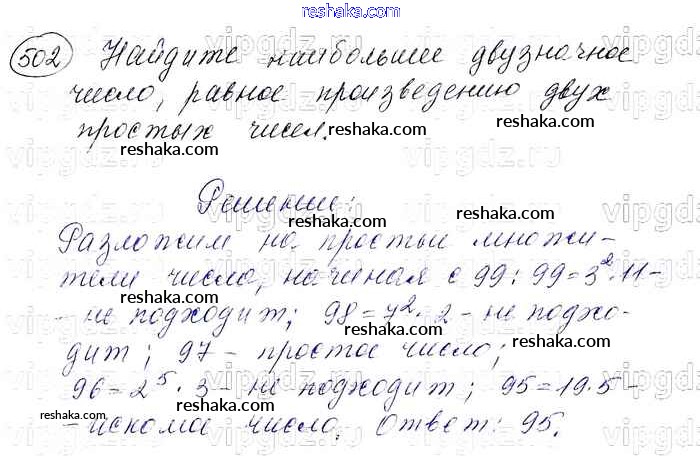 reshaka.com
502 Найдите наибольшее двузначное
число, равное произведению двух
простых чисел.
reshaka.com
reshaka.com
reshaka.com
reshaka.com
Решение:
reshaka.com
reshaka.com
Разложим на простые множи-
тели число, начиная с 99: 99=3²·11-
- не подходит; 98=7²·2 - не подхо-
дит; 97 - простое число;
96=2⁵·3 - не подходит; 95=19·5-
- искомое число. Ответ: 95.
reshaka.com
reshaka.com
reshaka.com
reshaka.com
reshaka.com
reshaka.com